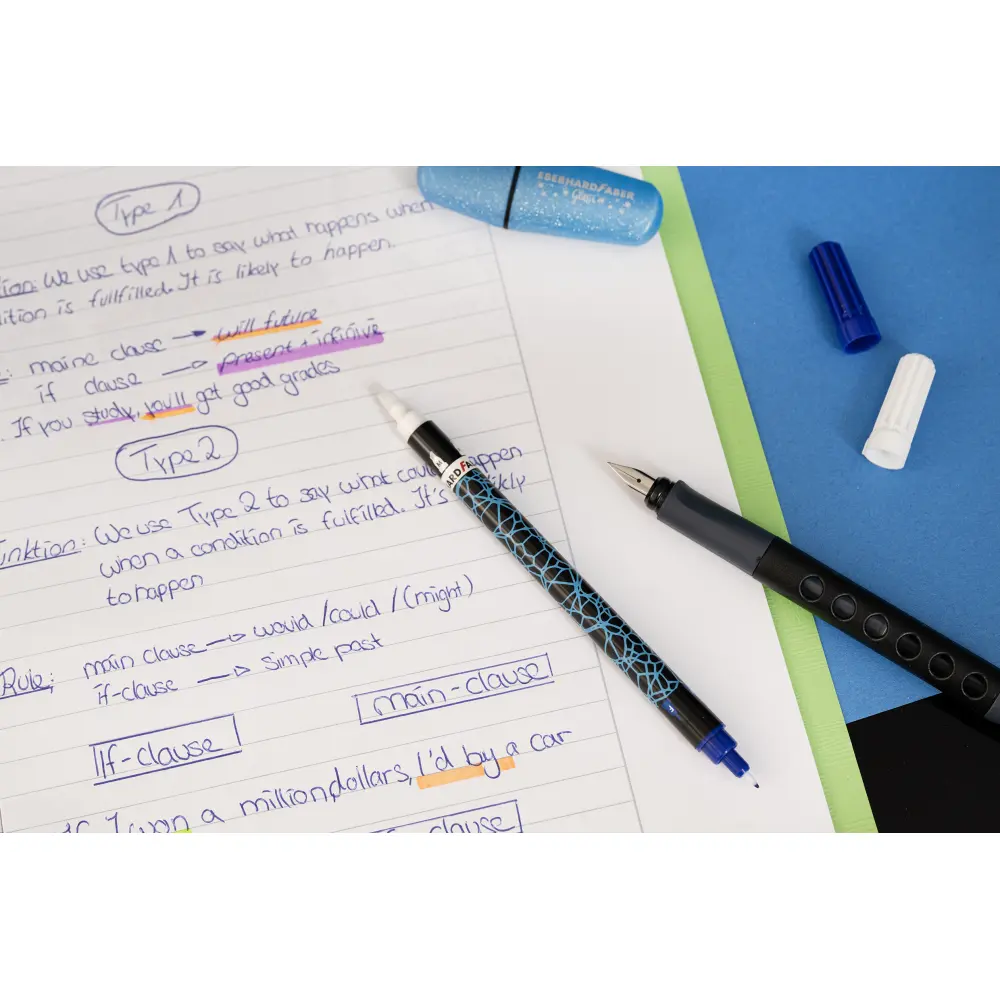 Type 1
tion: We use type 1 to say what happens when
dition is fullfilled. It is likely to happen.
maine clause → will future
if clause → present + infinive
. If you study, you'll get good grades
Type 2
unktion: We use Type 2 to say what could happen
when a condition is fulfilled. It's
to happen
Rule: main clause → would / could / (might)
if-clause → simple past
If-clause
main-clause
If I won a million dollars, I'd by a car
clause
EBERHARDFABER
Glitter
ARDFA